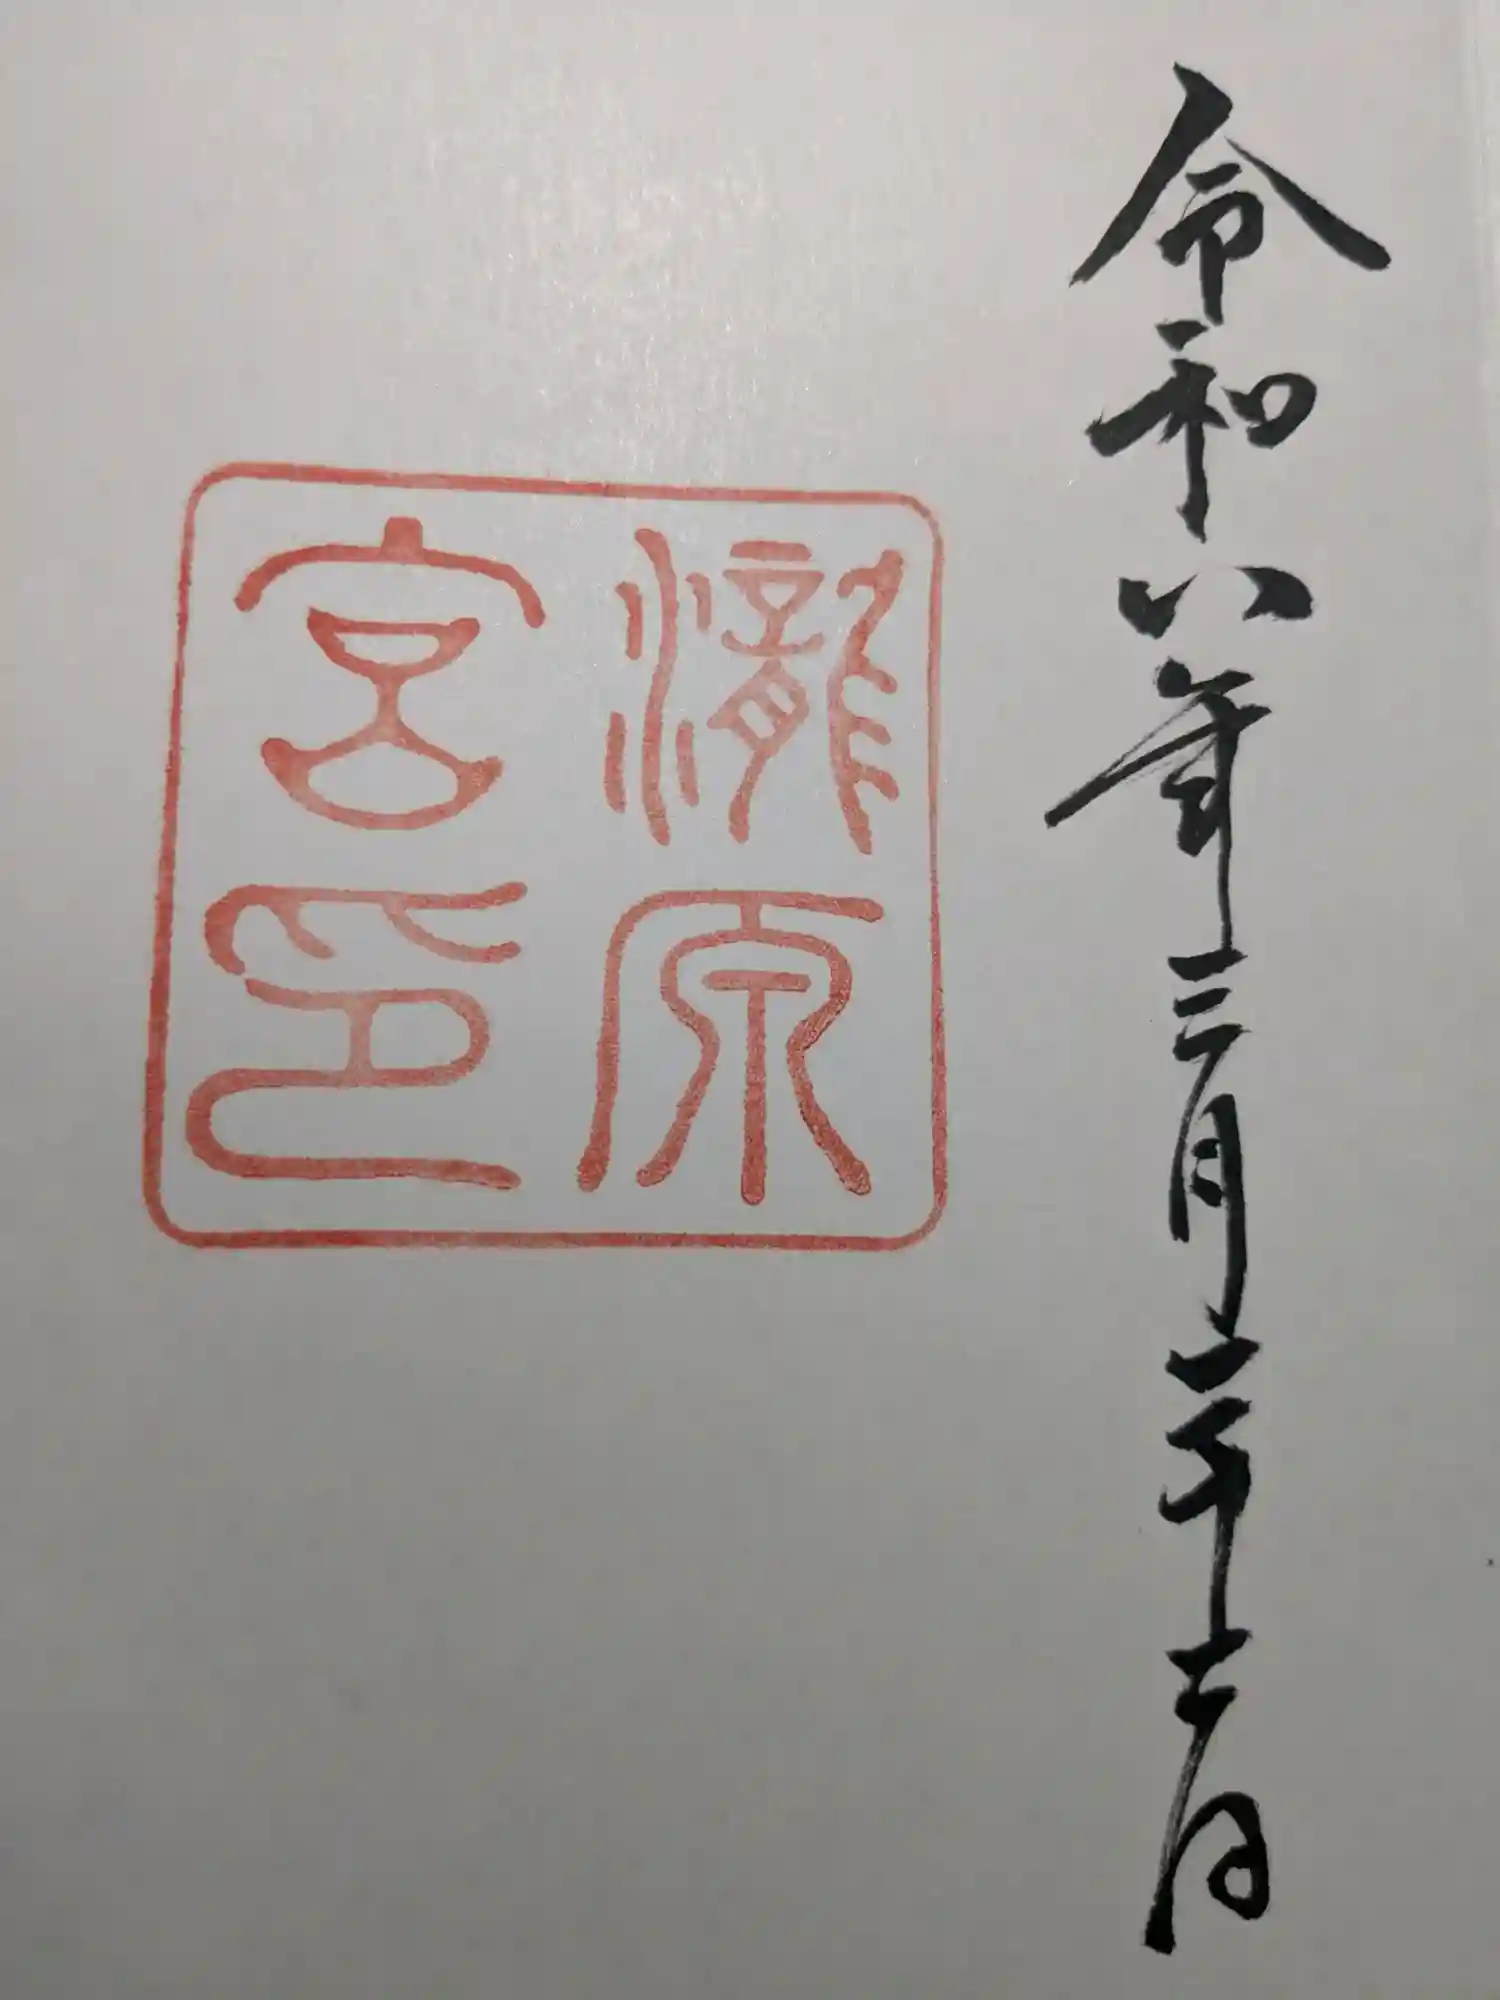 令和八年三月二十二日
瀧原
宮印